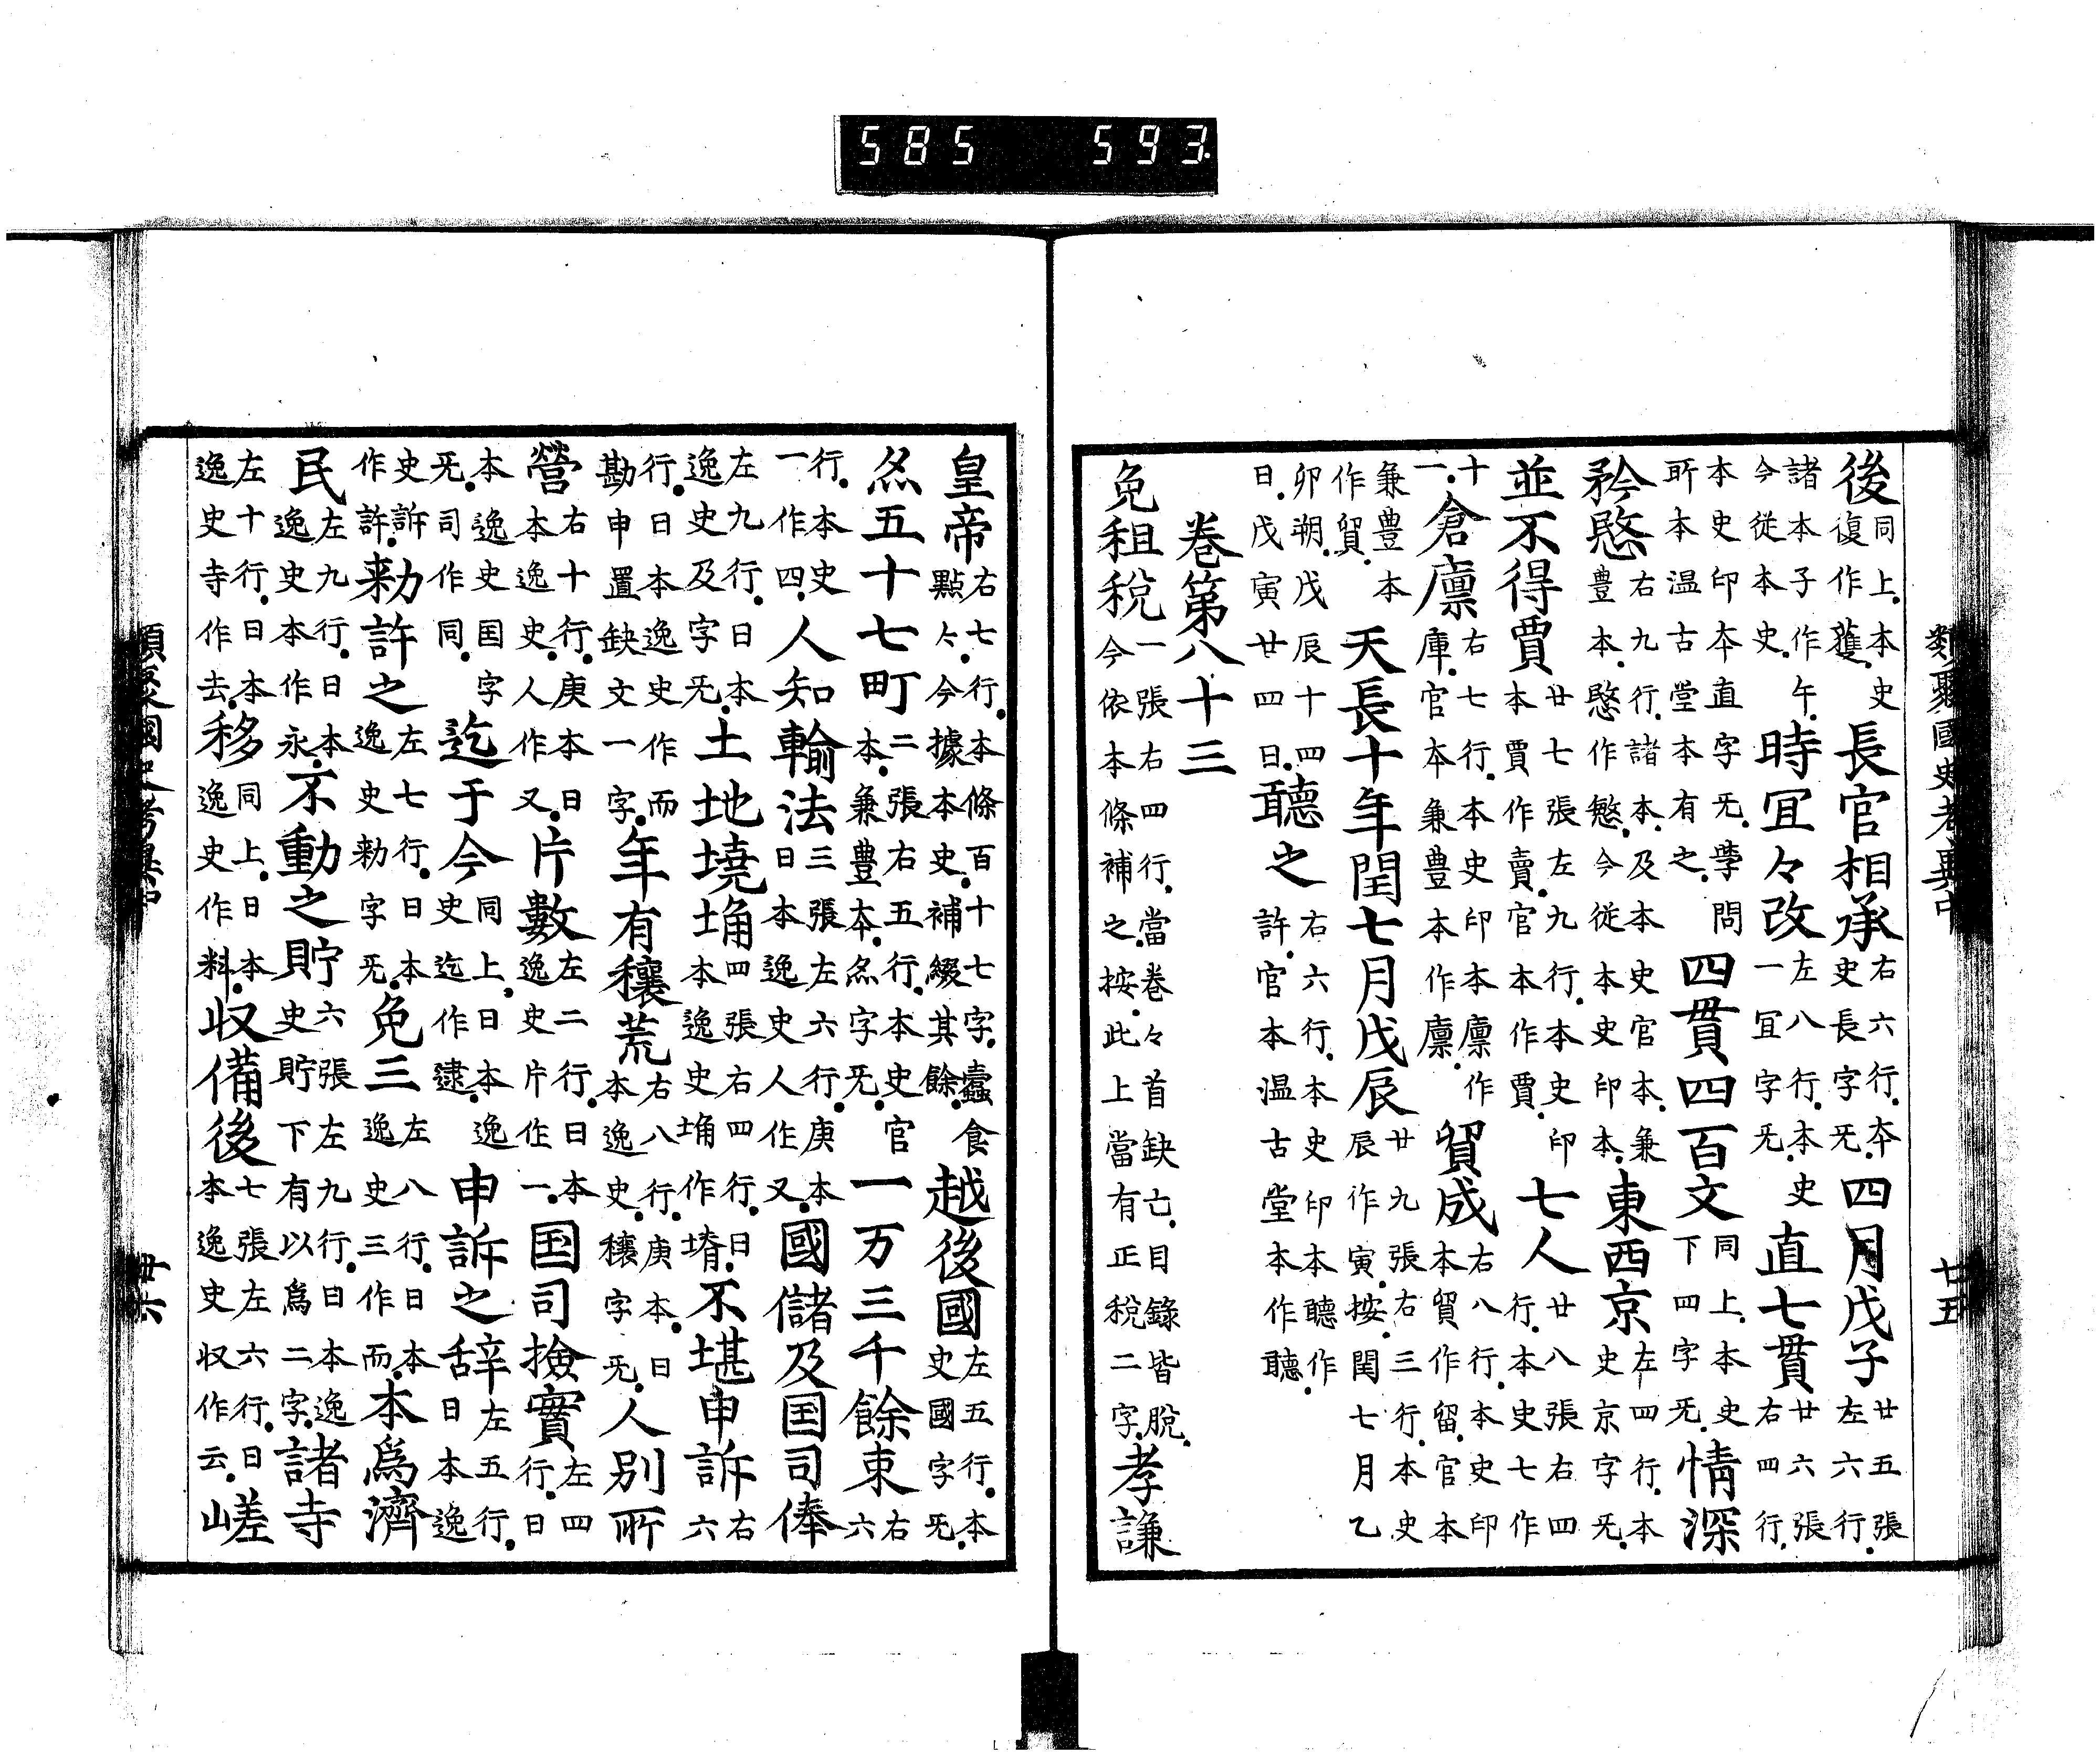 585 593
類聚國史考異中 廿五
後同上本史復作蒦長官相承右六行本史長字旡四月戊子廿五張左六行
諸本子作午今從本史時冝々改左八行本史一冝字旡直七貫廿六張右四行
本史印本直字旡學問所本温古堂本有之四貫四百文同上本史下四字旡情深
矜愍右九行諸本及本史官本兼豊本愍作慜今從本史印本東西京左四行本史京字旡
並不得賈廿七張左九行本史印本賈作賣官本作賈七人廿八張右四行本史七作
十一倉廪右七行本史印本廪作庫官本兼豊本作廪貿成右八行本史印本貿作留官本
兼豊本作貿天長十年閏七月戊辰廿九張右三行本史辰作寅按閏七月乙
卯朔戊辰十四日戊寅廿四日聽之右六行本史印本聽作許官本温古堂本作聽
巻第八十三
免租税一張右四行當巻々首缺亡目錄皆脱今依本條補之按此上當有正税二字孝謙
皇帝右七行本條百十七字蠧食點々今據本史補綴其餘越後國左五行本史國字旡
烝五十七町二張右五行本史官本兼豊本烝字旡一万三千餘束右六
行本史一作四人知輸法三張左六行庚本日本逸史人作又國儲及国司俸
左九行日本逸史及字旡土地墝埆四張右四行日本逸史埆作塉不堪申訴右六
行日本逸史作而勘申置缺文一字年有穰荒右八行庚本日本逸史穰字旡人別所
營右十行庚本日本逸史人作又片數左二行日本逸史片作一国司撿實左四行日
本逸史国字旡司作同迄于今同上日本逸史迄作逮申訴之辞左五行日本逸
史訴作許勅許之左七行日本逸史勅字旡免三左八行日本逸史三作而本為濟
民左九行日本逸史本作永不動之貯六張左九行日本逸史貯下有以為二字諸寺
左十行日本逸史寺作去移同上日本逸史作料収備後七張左六行日本逸史収作云嵯
類聚國史考異中 廿六